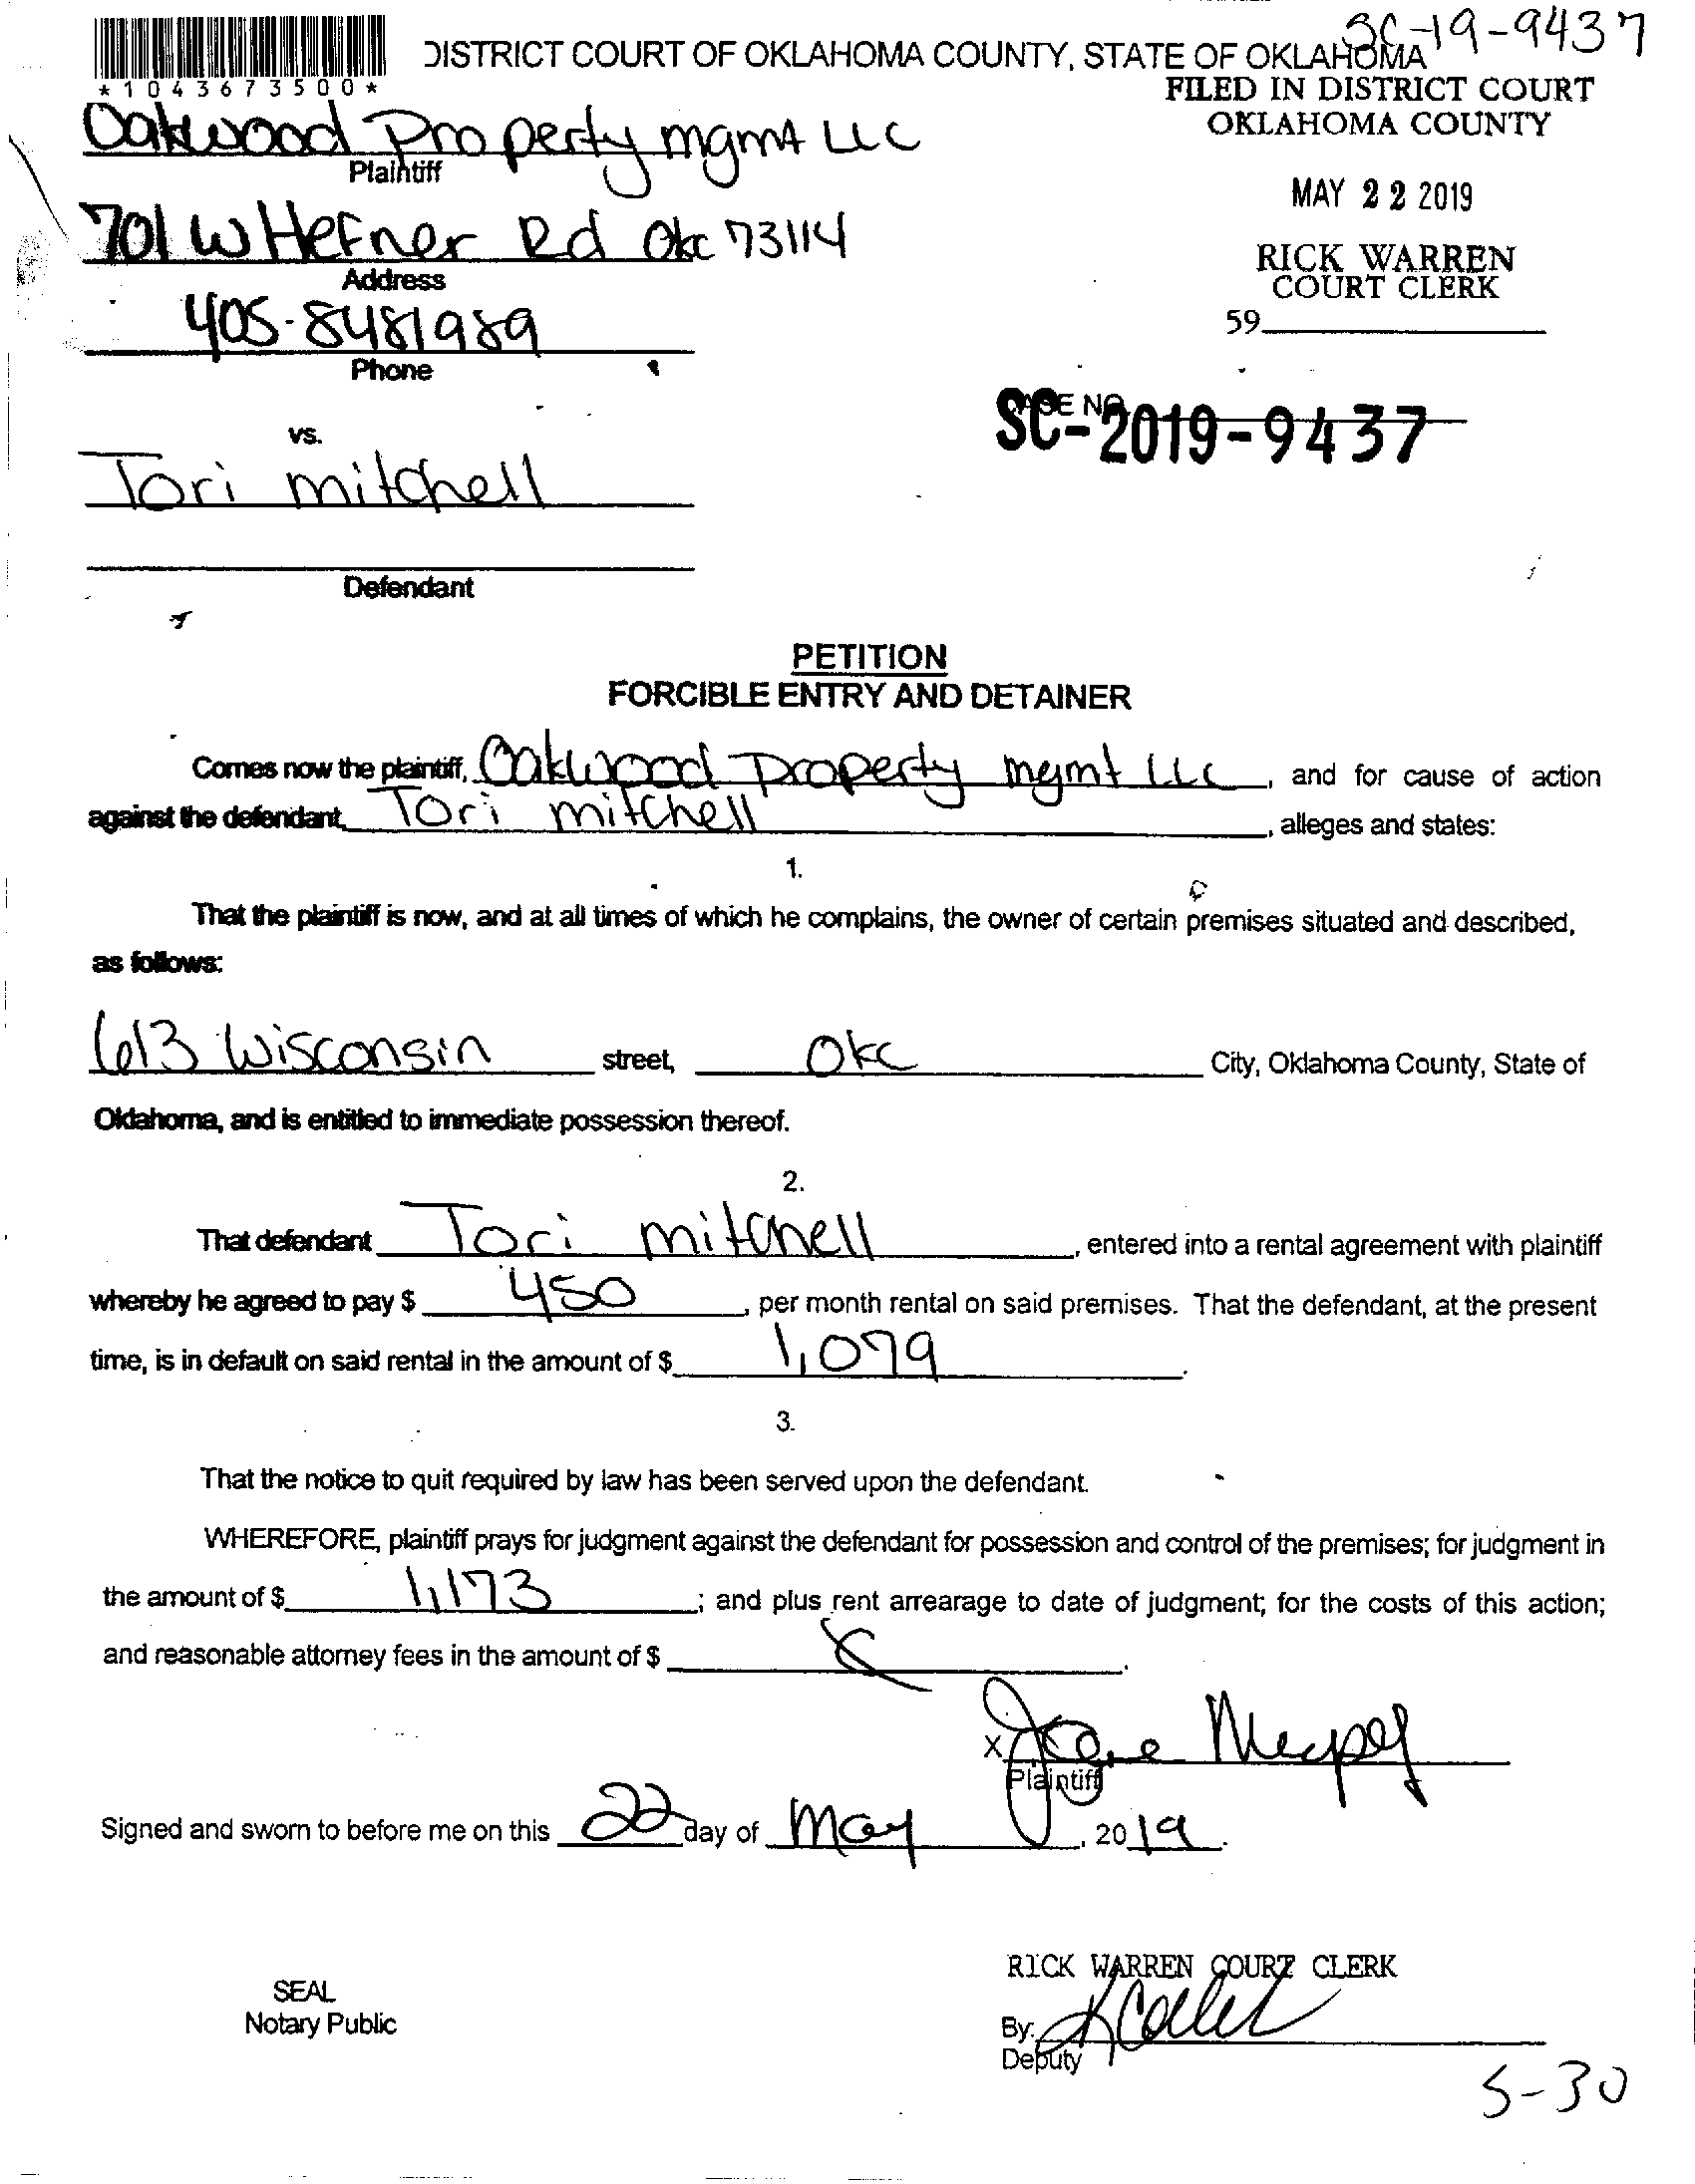 SC-19-9437
DISTRICT COURT OF OKLAHOMA COUNTY, STATE OF OKLAHOMA
*1043673500*
FILED IN DISTRICT COURT
OKLAHOMA COUNTY
Oakwood Property mgmt LLC
Plaintiff
MAY 22 2019
701 W Hefner Rd Okc 73114
Address
RICK WARREN
COURT CLERK
405-8481989
Phone
59
CASE NO.
SC-2019-9437
vs.
Tori mitchell
Defendant
PETITION
FORCIBLE ENTRY AND DETAINER
Comes now the plaintiff, Oakwood Property mgmt LLC, and for cause of action
against the defendant, Tori mitchell, alleges and states:
1.
That the plaintiff is now, and at all times of which he complains, the owner of certain premises situated and described,
as follows:
613 Wisconsin street, Okc City, Oklahoma County, State of
Oklahoma, and is entitled to immediate possession thereof.
2.
That defendant Tori mitchell, entered into a rental agreement with plaintiff
whereby he agreed to pay $ 450, per month rental on said premises. That the defendant, at the present
time, is in default on said rental in the amount of $ 1,079.
3.
That the notice to quit required by law has been served upon the defendant.
WHEREFORE, plaintiff prays for judgment against the defendant for possession and control of the premises; for judgment in
the amount of $ 1,173; and plus rent arrearage to date of judgment; for the costs of this action;
and reasonable attorney fees in the amount of $
X
Plaintiff
Signed and sworn to before me on this 22 day of May, 2019.
RICK WARREN COURT CLERK
SEAL
Notary Public
By:
Deputy
5-30